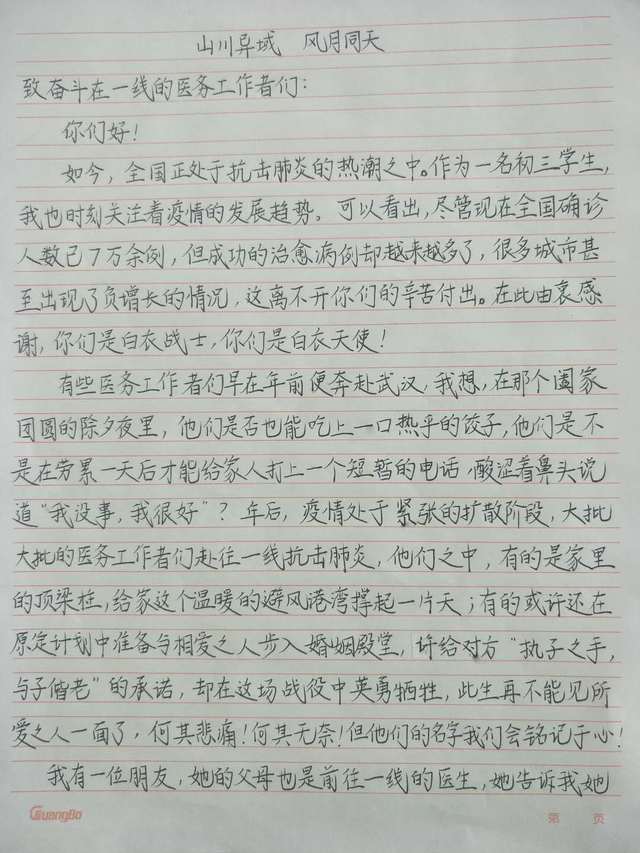 山川异域 风月同天
致奋斗在一线的医务工作者们：
你们好！
如今，全国正处于抗击肺炎的热潮之中。作为一名初三学生，
我也时刻关注着疫情的发展趋势。可以看出，尽管现在全国确诊
人数已7万余例，但成功的治愈病例却越来越多了，很多城市甚
至出现了负增长的情况，这离不开你们的辛苦付出。在此由衷感
谢，你们是白衣战士，你们是白衣天使！
有些医务工作者们早在年前便奔赴武汉，我想，在那个阖家
团圆的除夕夜里，他们是否也能吃上一口热乎的饺子，他们是不
是在劳累一天后才能给家人打上一个短暂的电话，酸涩着鼻头说
道“我没事，我很好”？年后，疫情处于紧张的扩散阶段，大批
大批的医务工作者们赴往一线抗击肺炎，他们之中，有的是家里
的顶梁柱，给家这个温暖的避风港湾撑起一片天；有的或许还在
原定计划中准备与相爱之人步入婚姻殿堂，许给对方“执子之手，
与子偕老”的承诺，却在这场战役中英勇牺牲，此生再不能见所
爱之人一面了，何其悲痛！何其无奈！但他们的名字我们会铭记于心！
我有一位朋友，她的父母也是前往一线的医生，她告诉我她
GuangBo
第 页